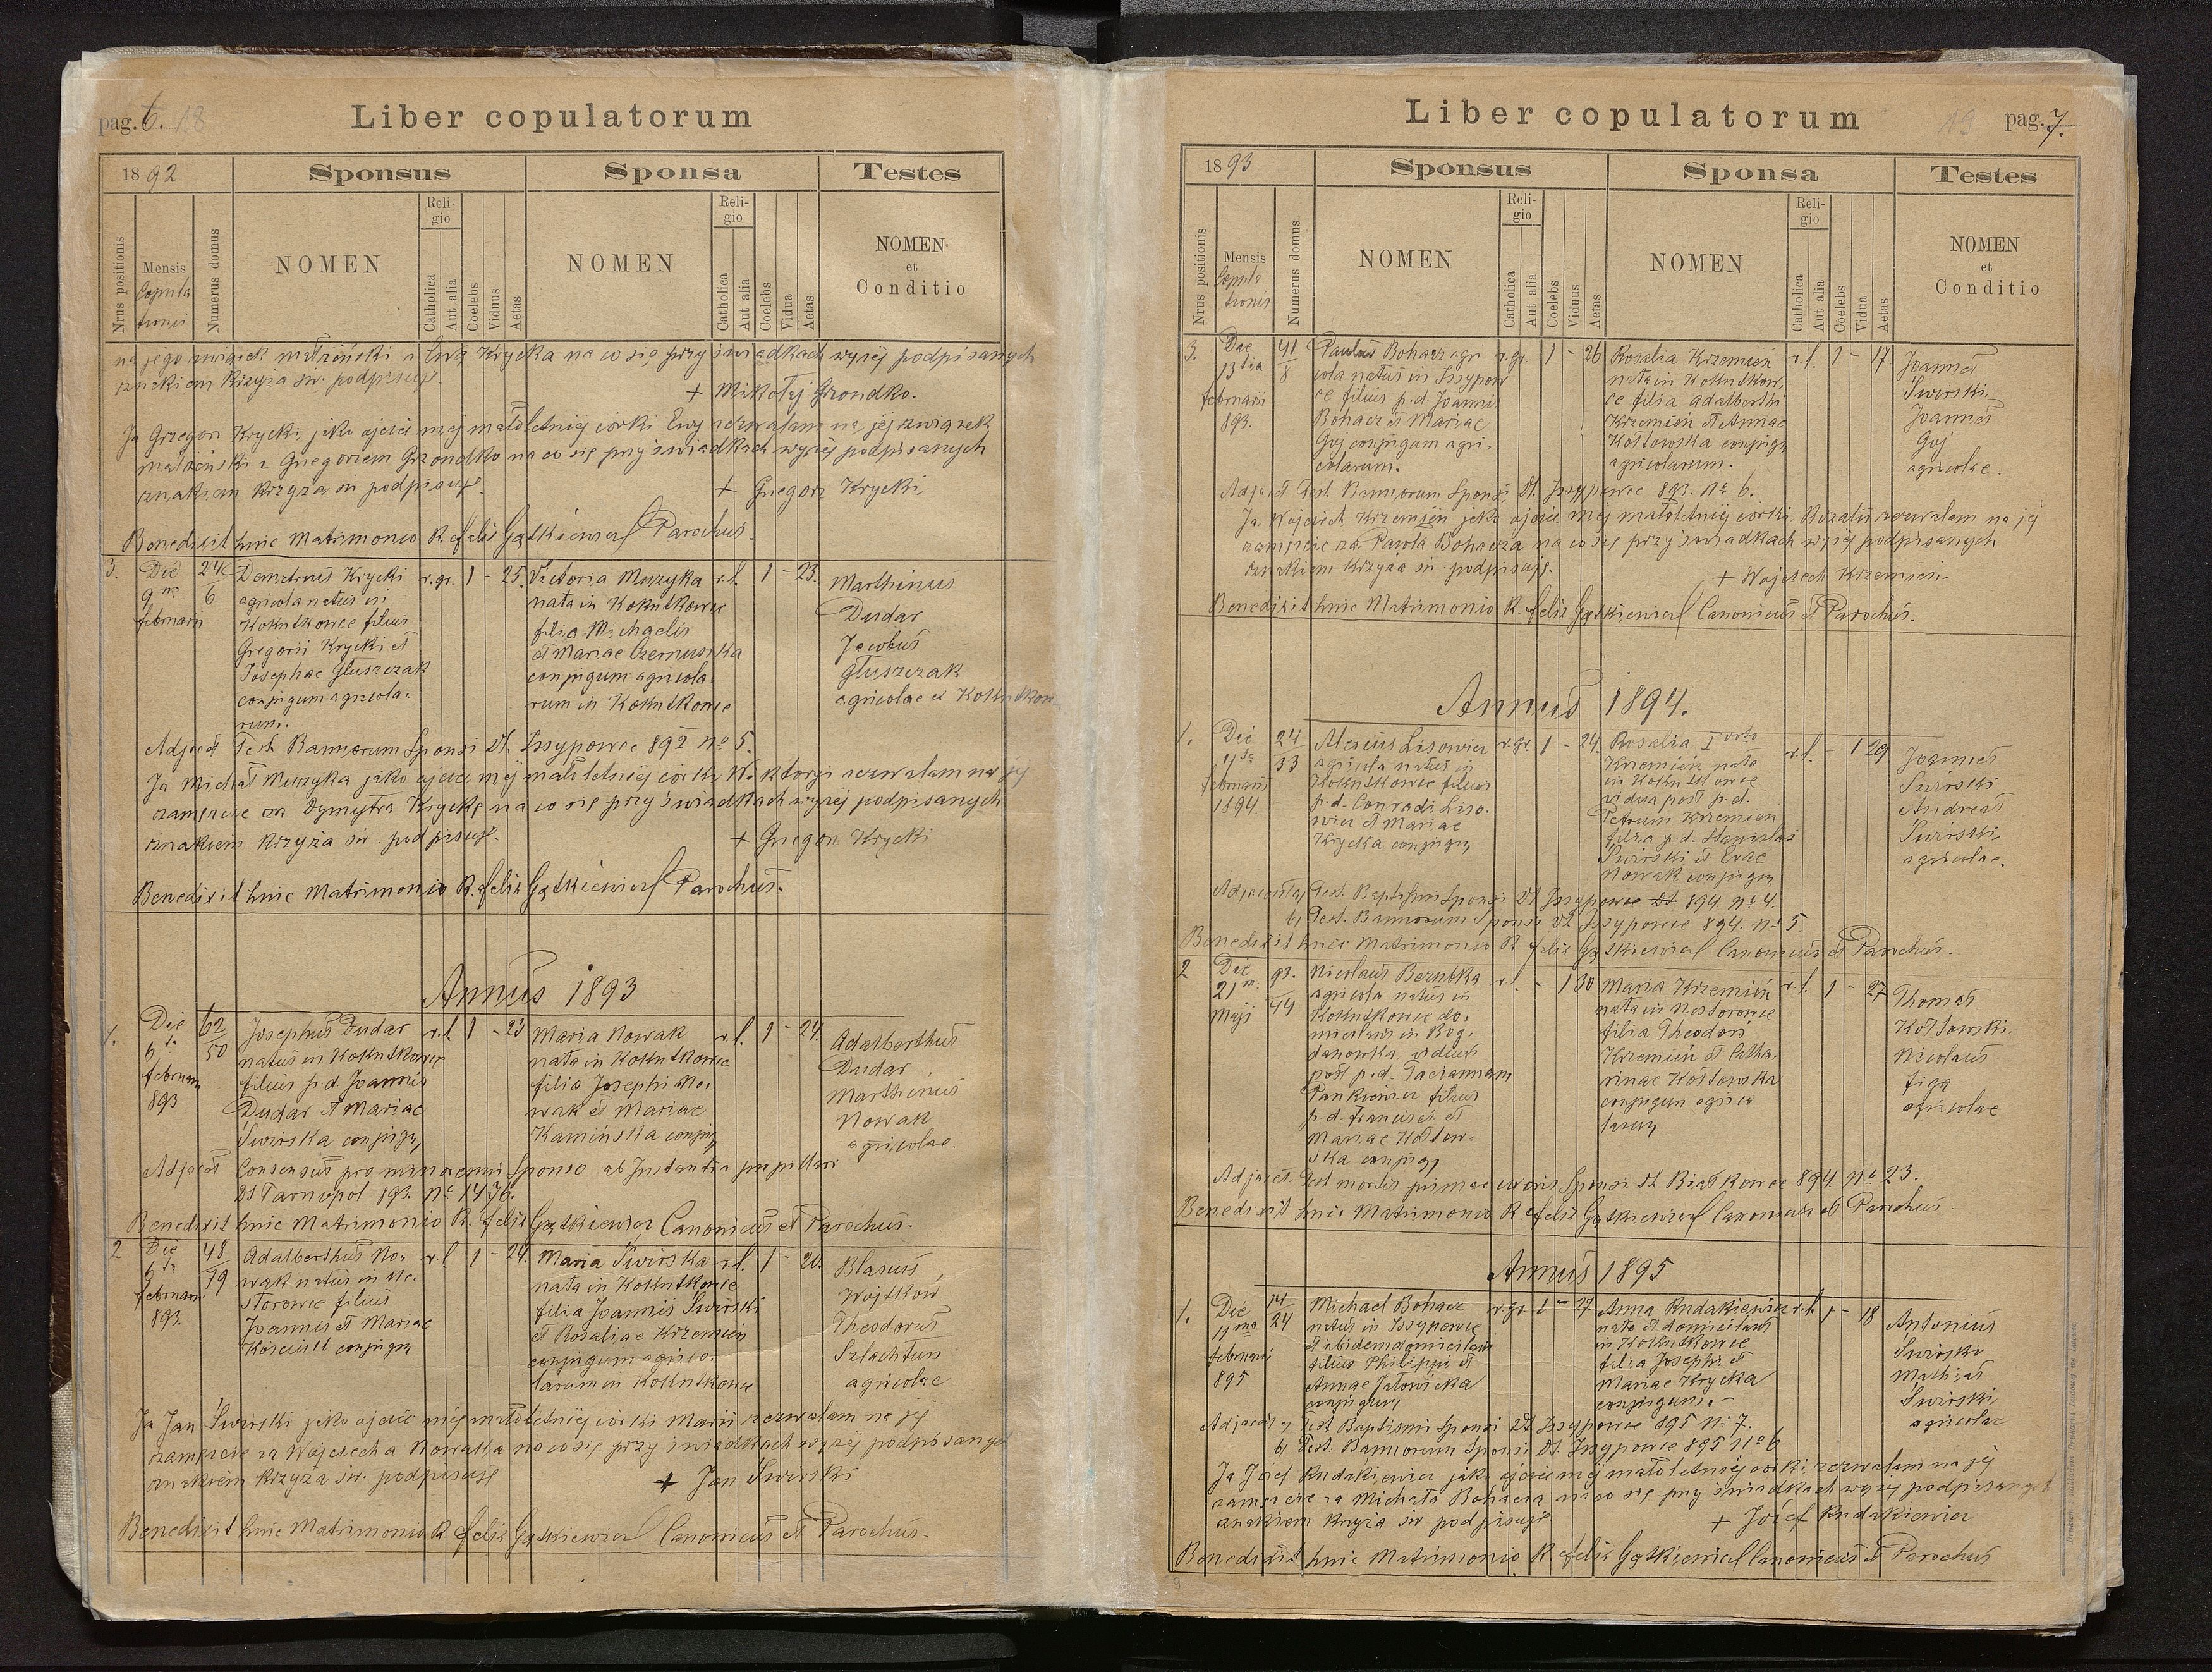 pag. 6. 18
Liber copulatorum
1892
Sponsus
Sponsa
Testes
Nrus positionis
Mensis
Copula
tionis
Numerus domus
NOMEN
Religio
Catholica
Aut alia
Coelebs
Viduus
Aetas
NOMEN
Religio
Catholica
Aut alia
Coelebs
Vidua
Aetas
NOMEN
et
Conditio
na jego związek małżeński z Ewą Krycka na co się przy świadkach wyżej podpisanych
znakiem krzyża św. podpisuję.
+ Mikołaj Grondko.
Ja Grzegorz Krycki, jako ojciec mej małoletniej córki Ewy zezwalam na jej związek
małżeński z Gregoriem Grzondko na co się przy świadkach wyżej podpisanych
znakiem krzyża św podpisuję.
+ Gregorz Krycki,
Benedixit hinc Matrimonio R. Felix Gątkiewicz Parochus.
3.
Die
9na
februarii
24
6
Demetrius Krycki
agricola natus in
Kokutkowce filius
Gregorii Krycki et
Josephae Głuszczak
conjugum agricola-
rum.
r.gr. 1 - 25.
Victoria Muzyka
nata in Kokutkowce
filia Michaelis
et Mariae Czernuszka
conjugum agricola
rum in Kokutkowce
r.l. 1 - 23.
Marthinus
Dudar
Jacobus
Głuszczak
agricolae ex Kokutkow
Adjacet Test. Bannorum Sponsi dt. Issypowce 892 No 5.
Ja Michał Muzyka jako ojciec mej małoletniej córki Wiktorji zezwalam na jej
zamęście za Dymytra Kryckę na co się przy świadkach wyżej podpisanych
znakiem krzyża św. podpisuję.
+ Gregorz Krycki
Benedixit hinc Matrimonio R. Felix Gątkiewicz Parochus.
Annus 1893
1.
Die
6ta
februarii
893
62
50
Josephus Dudar
natus in Kokutkowce
filius p.d Joannis
Dudar et Mariae
Świrska conjugum
r.l. 1 - 23
Maria Nowak
nata in Kokutkowce
filia Josephi No-
wak et Mariae
Kamińska conjug
r.l. 1 - 24.
Adalberthus
Dudar
Marthinus
Nowak
agricolae.
Adjacet Consensus pro minorenni Sponso ab Instantia pupillari
dt Tarnopol 893. No 1476.
Benedixit hinc Matrimonio R. Felix Gątkiewicz Canonicus et Parochus.
2
Die
6ta
februarii
893.
48
79
Adalberthus No-
wak natus in Ne-
storowce filius
Joannis et Mariae
conjugum
r.l. 1 - 24.
Maria Świrska
nata in Kokutkowce
filia Joannis Świrski
et Rosaliae Krzemień
conjugum agrico-
larum in Kokutkowce
r.l. 1 - 20.
Blasius
Wojtków
Theodorus
Szlachtun
agricolae
Ja Jan Świrski jako ojciec mej małoletniej córki Marii zezwalam na jej
zamęście za Wojciecha Nowaka na co się przy świadkach wyżej podpisanych
znakiem krzyża św. podpisuję
+ Jan Świrski
Benedixit hinc Matrimonio R. Felix Gątkiewicz Canonicus et Parochus.
Liber copulatorum
19 pag. 7.
1893
Sponsus
Sponsa
Testes
Nrus positionis
Mensis
Copula
tionis
Numerus domus
NOMEN
Religio
Catholica
Aut alia
Coelebs
Viduus
Aetas
NOMEN
Religio
Catholica
Aut alia
Coelebs
Vidua
Aetas
NOMEN
et
Conditio
3.
Die
13tia
februarii
893.
41
8
Paulus Bohacz agri
cola natus in Issypow
ce filius p.d. Joannis
Bohacz et Mariae
Goj conjugum agri-
colarum.
r.gr. 1 - 26
Rosalia Krzemień
nata in Kokutkow,
ce filia Adalberthi
Krzemień et Annae
Kołtowska conjug,
agricolarum.
r.l. 1 - 17
Joannes
Świrski
Joannes
Goj
agricolae.
Adjacet Test. Bannorum Sponsi dt. Issypowce 893. No 6.
Ja Wojciech Krzemień jako ojciec mej małoletniej córki Rozalii zezwalam na jej
zamęście za Pawła Bohacza na co się przy świadkach wyżej podpisanych
znakiem krzyża św. podpisuję.
+ Wojciech Krzemień
Benedixit hinc Matrimonio R. Felix Gątkiewicz Canonicus et Parochus.
Annus 1894.
1.
Die
februarii
1894.
24
33
Alexius Lisowicz
agricola natus in
Kokutkowce filius
p.d. Conradi Liso-
wicz et Mariae
Krycka conjugum
r.gr. 1 - 24.
Rosalia I voto
Krzemień nata
in Kokutkowce
vidua post p.d.
Petrum Krzemień
filia p.d. Stanislai
Świrski et Evae
Nowak conjugum
r.l. - 1 29
Joannes
Świrski
Andreas
Świrski,
agricolae.
Adjacent a) Test. Baptismi Sponsi dt Issypowce dt 894. No 4.
b) Test. Bannorum Sponsi dt. Issypowce 894. No 5
Benedixit hinc Matrimonio R. Felix Gątkiewicz Canonicus et Parochus.
2
Die
21a
Maji
93.
44
Nicolaus Bezubka
agricola natus in
Kokutkowce do-
miciliaus in Bog-
danowka, viduus
post p.d. Tacianam
Pankiewicz filius
p.d. Francisci et
Mariae Kołtow-
ska conjug,
r.l. - 1 30
Maria Krzemień
nata in Nestorowce
filia Theodori
Krzemień et Catha-
rinae Kołtowska
conjugum agrico
larum
r.l. 1 - 27
Thomas
Kołtowski
Nicolaus
Figa
agricolae
Adjacet Test mortis primae uxoris Sponsi dt Białkowce 894. No 23.
Benedixit hinc Matrimonio R. Felix Gątkiewicz Canonicus et Parochus.
Annus 1895
1.
Die
11ma
februarii
895
14
24
Michael Bohacz
natus in Issypowce
et ibidem domicilaus
filius Philippi et
Annae Jałowicka
conjugum
r.gr. 1 - 27
Anna Rudakiewicz
nata et domicilaus
in Kokutkowce
filia Josephi et
Mariae Krycka
conjugum.
r.l. 1 - 18
Antonius
Świrski
Mathias
Świrski,
agricolae
Adjacet a) Test Baptismi Sponsi dt Issypowce 895 No 7.
b) Test. Bannorum Sponsi dt. Issypowce 895 No 6
Ja Józef Rudakiewicz jako ojciec mej małoletniej córki zezwalam na jej
zamęście za Michała Bohacza na co się przy świadkach wyżej podpisanych
znakiem krzyża św podpisuję
+ Józef Rudakiewicz
Benedixit hinc Matrimonio R. Felix Gątkiewicz Canonicus et Parochus